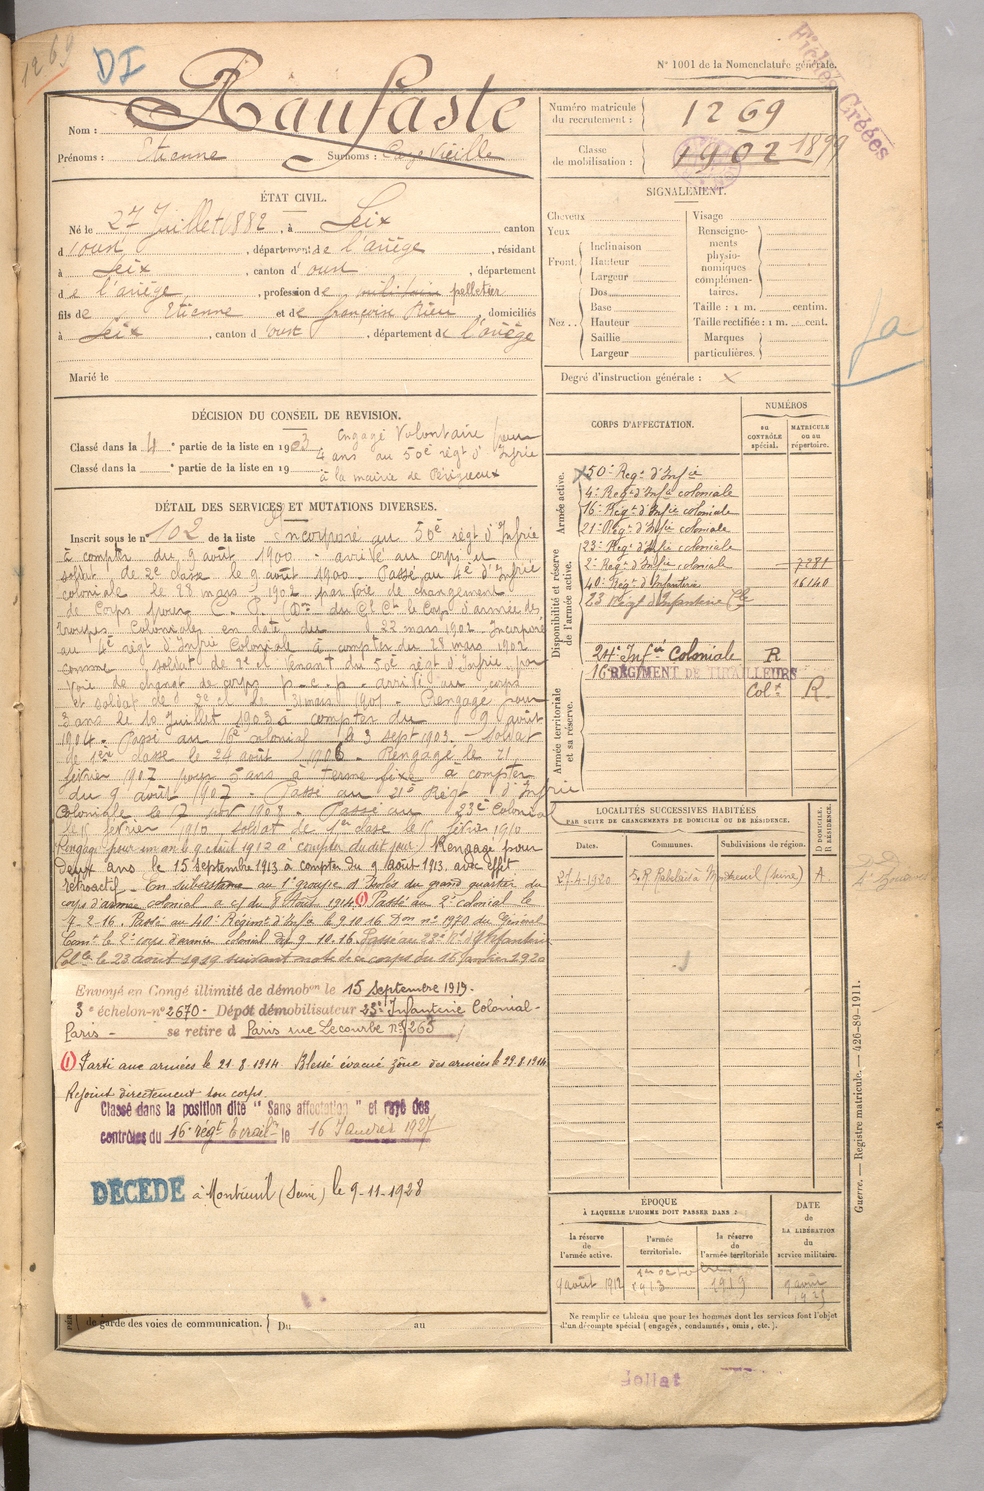 1269
DI
N° 1001 de la Nomenclature générale.
Nom : Raufaste
Prénoms : Etienne Surnoms :
Numéro matricule du recrutement : 1269
Classe de mobilisation : 1902 1899
ÉTAT CIVIL.
Né le 27 Juillet 1882, à Seix canton
d'oust, département de l'ariège, résidant
à Seix, canton d'oust, département
de l'ariège, profession de militaire pelletier
fils de Etienne et de françoise Rieu, domiciliés
à Seix, canton d'oust, département de l'ariège
Marié le
SIGNALEMENT.
Cheveux
Yeux
Front. Inclinaison
Hauteur
Largeur
Nez .. Dos
Base
Hauteur
Saillie
Largeur
Visage
Renseignements physionomiques complémentaires.
Taille : 1 m. centim.
Taille rectifiée : 1 m. cent.
Marques particulières.
Degré d'instruction générale : x
DÉCISION DU CONSEIL DE REVISION.
Classé dans la 4e partie de la liste en 1903 engagé Volontaire pour
4 ans au 50e régt d'Infrie
Classé dans la e partie de la liste en 19
à la mairie de Périgueux
DÉTAIL DES SERVICES ET MUTATIONS DIVERSES.
Inscrit sous le n° 102 de la liste Incorporé au 50e régt d'Infrie
à compter du 9 août 1900 - arrivé au corps et
soldat de 2e classe le 9 août 1900 - Passé au 4e d'Infrie
coloniale le 28 mars 1902 par voie de changement
de Corps pour C. P. (Don du Gl Ct le Corps d'armée des
troupes Coloniales en date du 22 mars 1902. Incorporé
au 4e régt d'Infrie Coloniale à compter du 28 mars 1902
comme soldat de 2e cl venant du 50e régt d'Infrie par
voie de changt de corps p-c-p arrivé au corps
et soldat de 2e cl le 31 mars 1902 - Rengagé pour
3 ans le 10 Juillet 1903 à compter du 9 août
1904. Passé au 16e colonial le 3 sept 1903. Soldat
de 1ère classe le 24 août 1906. Rengagé le 21
février 1907 pour 5 ans à terme fixe à compter
du 9 août 1907 - Passé au 21e Régt d'Infrie
Coloniale le 17 nov 1908 - Passé au 23e Colonial
le 15 février 1910 soldat de 1re classe le 15 février 1910
Rengagé pour un an le 9 août 1912 à compter du dit jour. Rengagé pour
deux ans le 15 septembre 1913 à compter du 9 août 1913. avec effet
rétroactif - En subsistance au 1er groupe du grand quartier du
corps d'armée colonial a c/ du 8 Août 1914. (1) Passé au 2e colonial le
7-2-16. Passé au 40e Régiment d'Infie le 9.10.16. Don n° 1970 du Général
Comt le 2e corps d'armée colonial du 9.10.16. Passé au 23e Rt d'Infanterie
Colle le 23 août 1919 suivant note de ce corps du 16 janvier 1920
Envoyé en Congé illimité de démobon le 15 Septembre 1919.
3e échelon n° 2670 - Dépôt démobilisateur 23e Infanterie Colonial-
Paris - se retire d Paris rue Lecourbe n° 263
(1) Parti aux armées le 21.8.1914 Blessé évacué zône des armées le 29.8.1914
Rejoint directement son corps.
Classé dans la position dite "Sans affectation" et rayé des
contrôles du 16e régt Tirailr le 16 Janvier 1927
DÉCÉDÉ à Montreuil (Seine) le 9-11-1928
de garde des voies de communication. Du au
CORPS D'AFFECTATION.
NUMÉROS
au CONTRÔLE spécial.
MATRICULE ou au répertoire.
Armée active.
Disponibilité et réserve de l'armée active.
Armée territoriale et sa réserve.
50e Regt d'Infie
4e Regt d'Infie coloniale
16e Regt d'Infie coloniale
21e Regt d'Infie coloniale
23e Regt d'Infie coloniale
2e Regt d'Infie coloniale 7281
40e Regt d'Infanterie 16140
23 Regt d'Infanterie Cle
24e Infie Coloniale R
16e RÉGIMENT DE TIRAILLEURS
Colx R.
LOCALITÉS SUCCESSIVES HABITÉES
PAR SUITE DE CHANGEMENTS DE DOMICILE OU DE RÉSIDENCE.
Dates. Communes. Subdivisions de région. D DOMICILE. R RÉSIDENCE.
27-4-1920 R. Rabelais à Montreuil (Seine)
ÉPOQUE
À LAQUELLE L'HOMME DOIT PASSER DANS
la réserve de l'armée active.
l'armée territoriale.
la réserve de l'armée territoriale
DATE de LA LIBÉRATION du service militaire.
9 août 1912
1er octobre 1913
1919
9 août
Ne remplir ce tableau que pour les hommes dont les services font l'objet
d'un décompte spécial (engagés, condamnés, omis, etc.).
Guerre. — Registre matricule. — 426-89-1911.